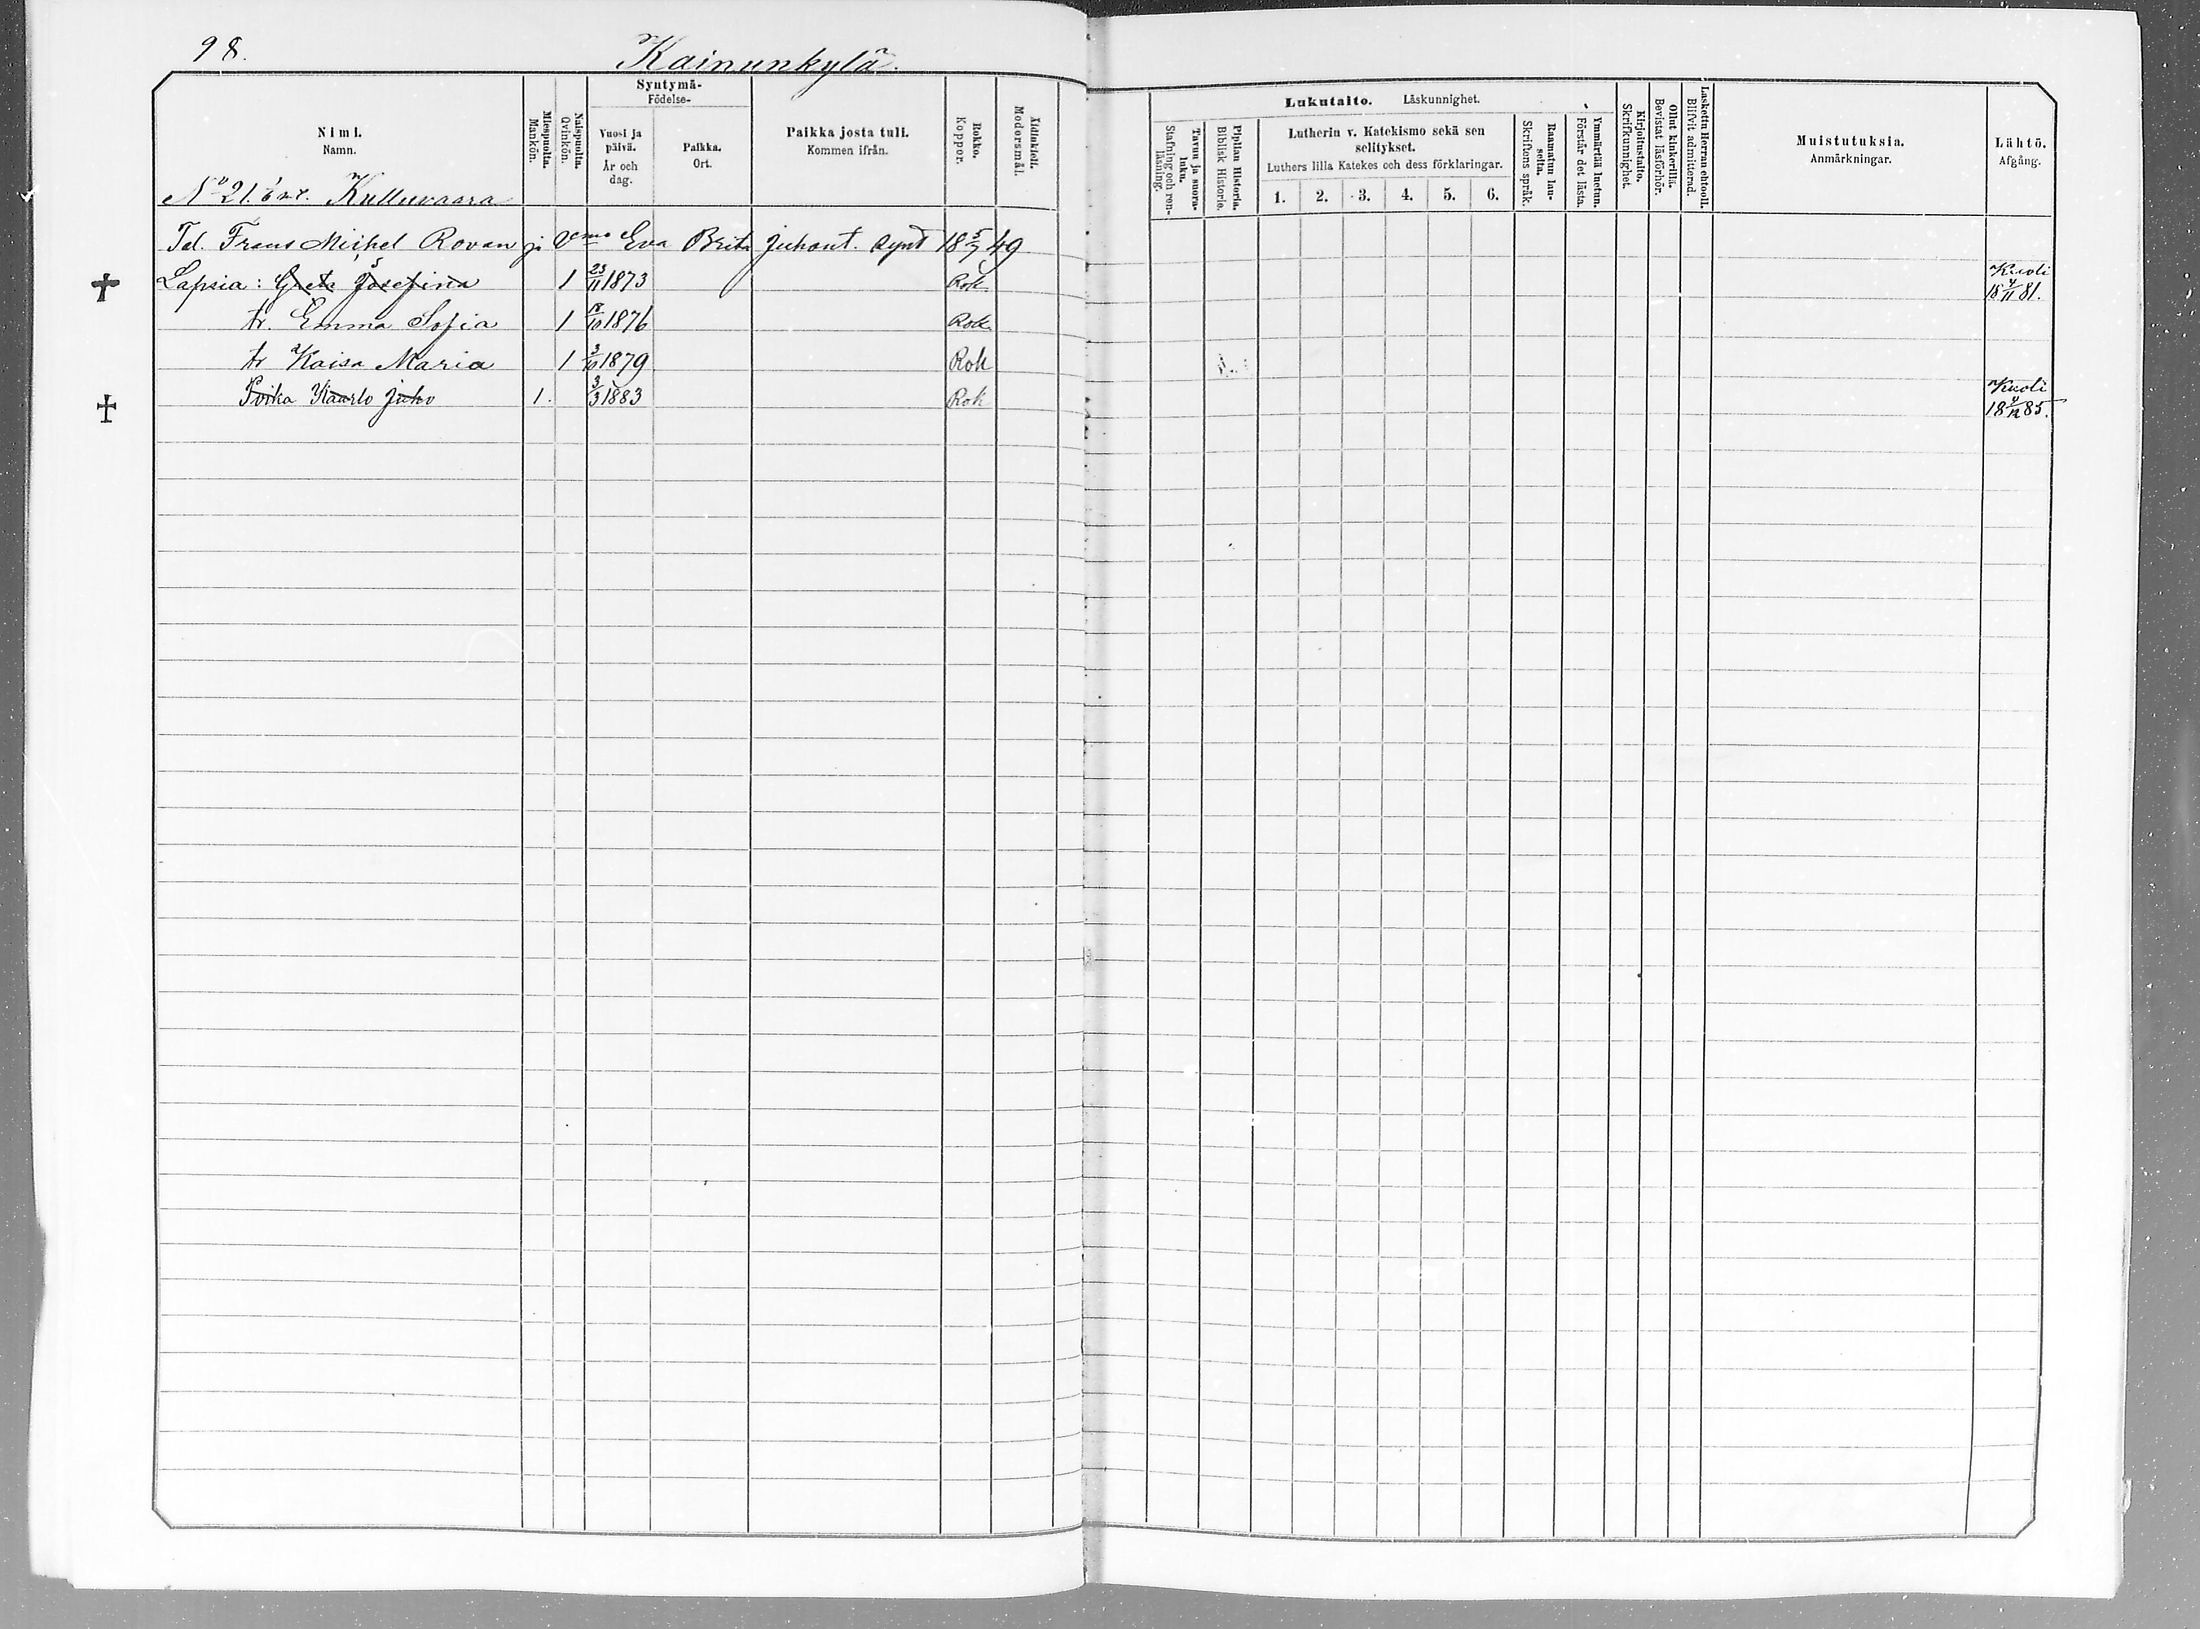 98.
Kainunkylä.
Nimi.
Namn.
Miespuolta.
Mankön.
Naispuolta.
Qvinkön.
Syntymä-
Födelse-
Vuosi ja
päivä.
År och
dag.
Paikka.
Ort.
Paikka josta tuli.
Kommen ifrån.
Rokko.
Koppor.
Äidinkieli.
Modersmål.
Lukutaito. Läskunnighet.
Tavuu ja suora-
luku.
Stafning och ren-
läsning.
Piplian Historia.
Biblisk Historie.
Lutherin v. Katekismo sekä sen
selitykset.
Luthers lilla Katekes och dess förklaringar.
1. 2. 3. 4. 5. 6.
Raamatun lau-
seita.
Skriftens språk.
Ymmärtää luetun.
Förstår det lästa.
Kirjoitustaito.
Skrifkunnighet.
Ollut kinkerillä.
Bevistat läsförhör.
Laskettu Herran ehtooll.
Blifvit admitterad.
Muistutuksia.
Anmärkningar.
Lähtö.
Afgång.
No 21. Kulluvaara
Tal. Frans Mickel Rovan ja Vmo Eva Brita Juhont. synt 18 5/7 49
Lapsia: Greta Josefina 1 23/11 1873 Rok. Kuoli
18 4/11 81.
tr. Emma Sofia 1 /10 1876 Rok.
tr Kaisa Maria 1 3/10 1879 Rok
Poika Kaarlo Juho 1. 3/3 1883 Rok Kuoli
18 4/12 85.